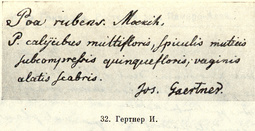 Poa rubens. Moench.
P. calycibus multifloris, spiculis muticis
subcompressis quinquefloris; vaginis
alatis scabris.
Jos. Gaertner.
32. Гертнер И.